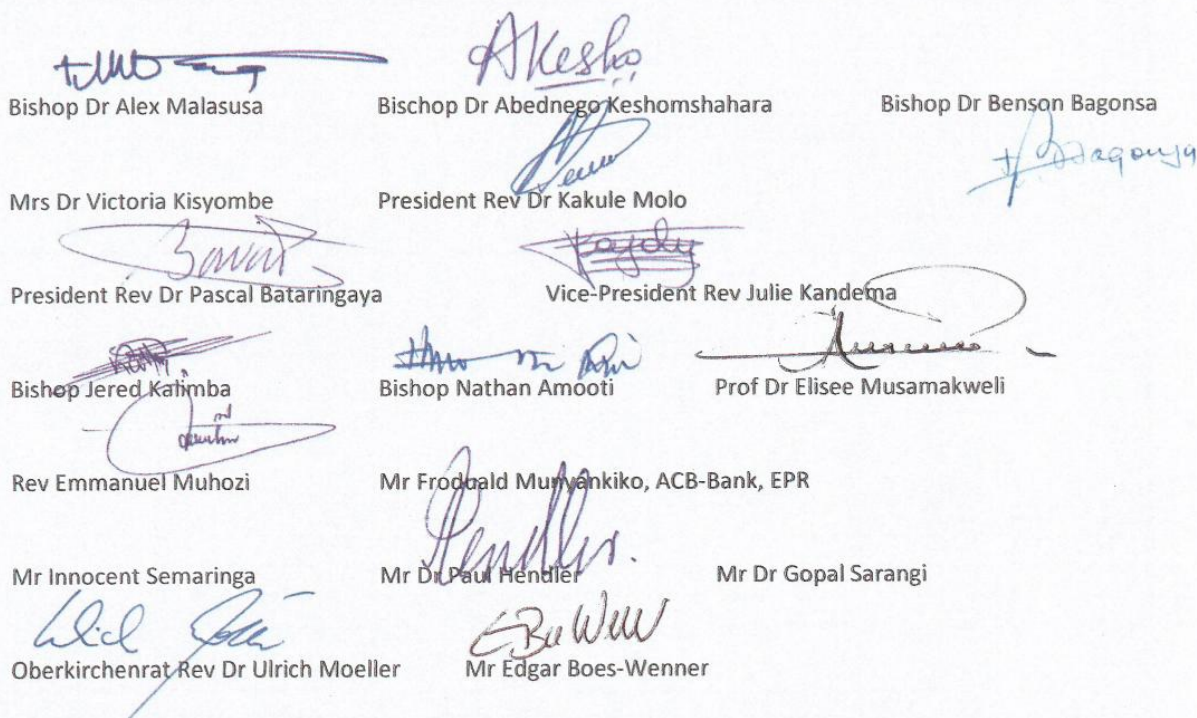 AKesho
Bishop Dr Alex Malasusa Bischop Dr Abednego Keshomshahara Bishop Dr Benson Bagonsa
Mrs Dr Victoria Kisyombe President Rev Dr Kakule Molo
President Rev Dr Pascal Bataringaya Vice-President Rev Julie Kandema
Bishop Jered Kalimba Bishop Nathan Amooti Prof Dr Elisee Musamakweli
Rev Emmanuel Muhozi Mr Froduald Munyankiko, ACB-Bank, EPR
Hendler.
Mr Innocent Semaringa Mr Dr Paul Hendler Mr Dr Gopal Sarangi
Oberkirchenrat Rev Dr Ulrich Moeller Mr Edgar Boes-Wenner